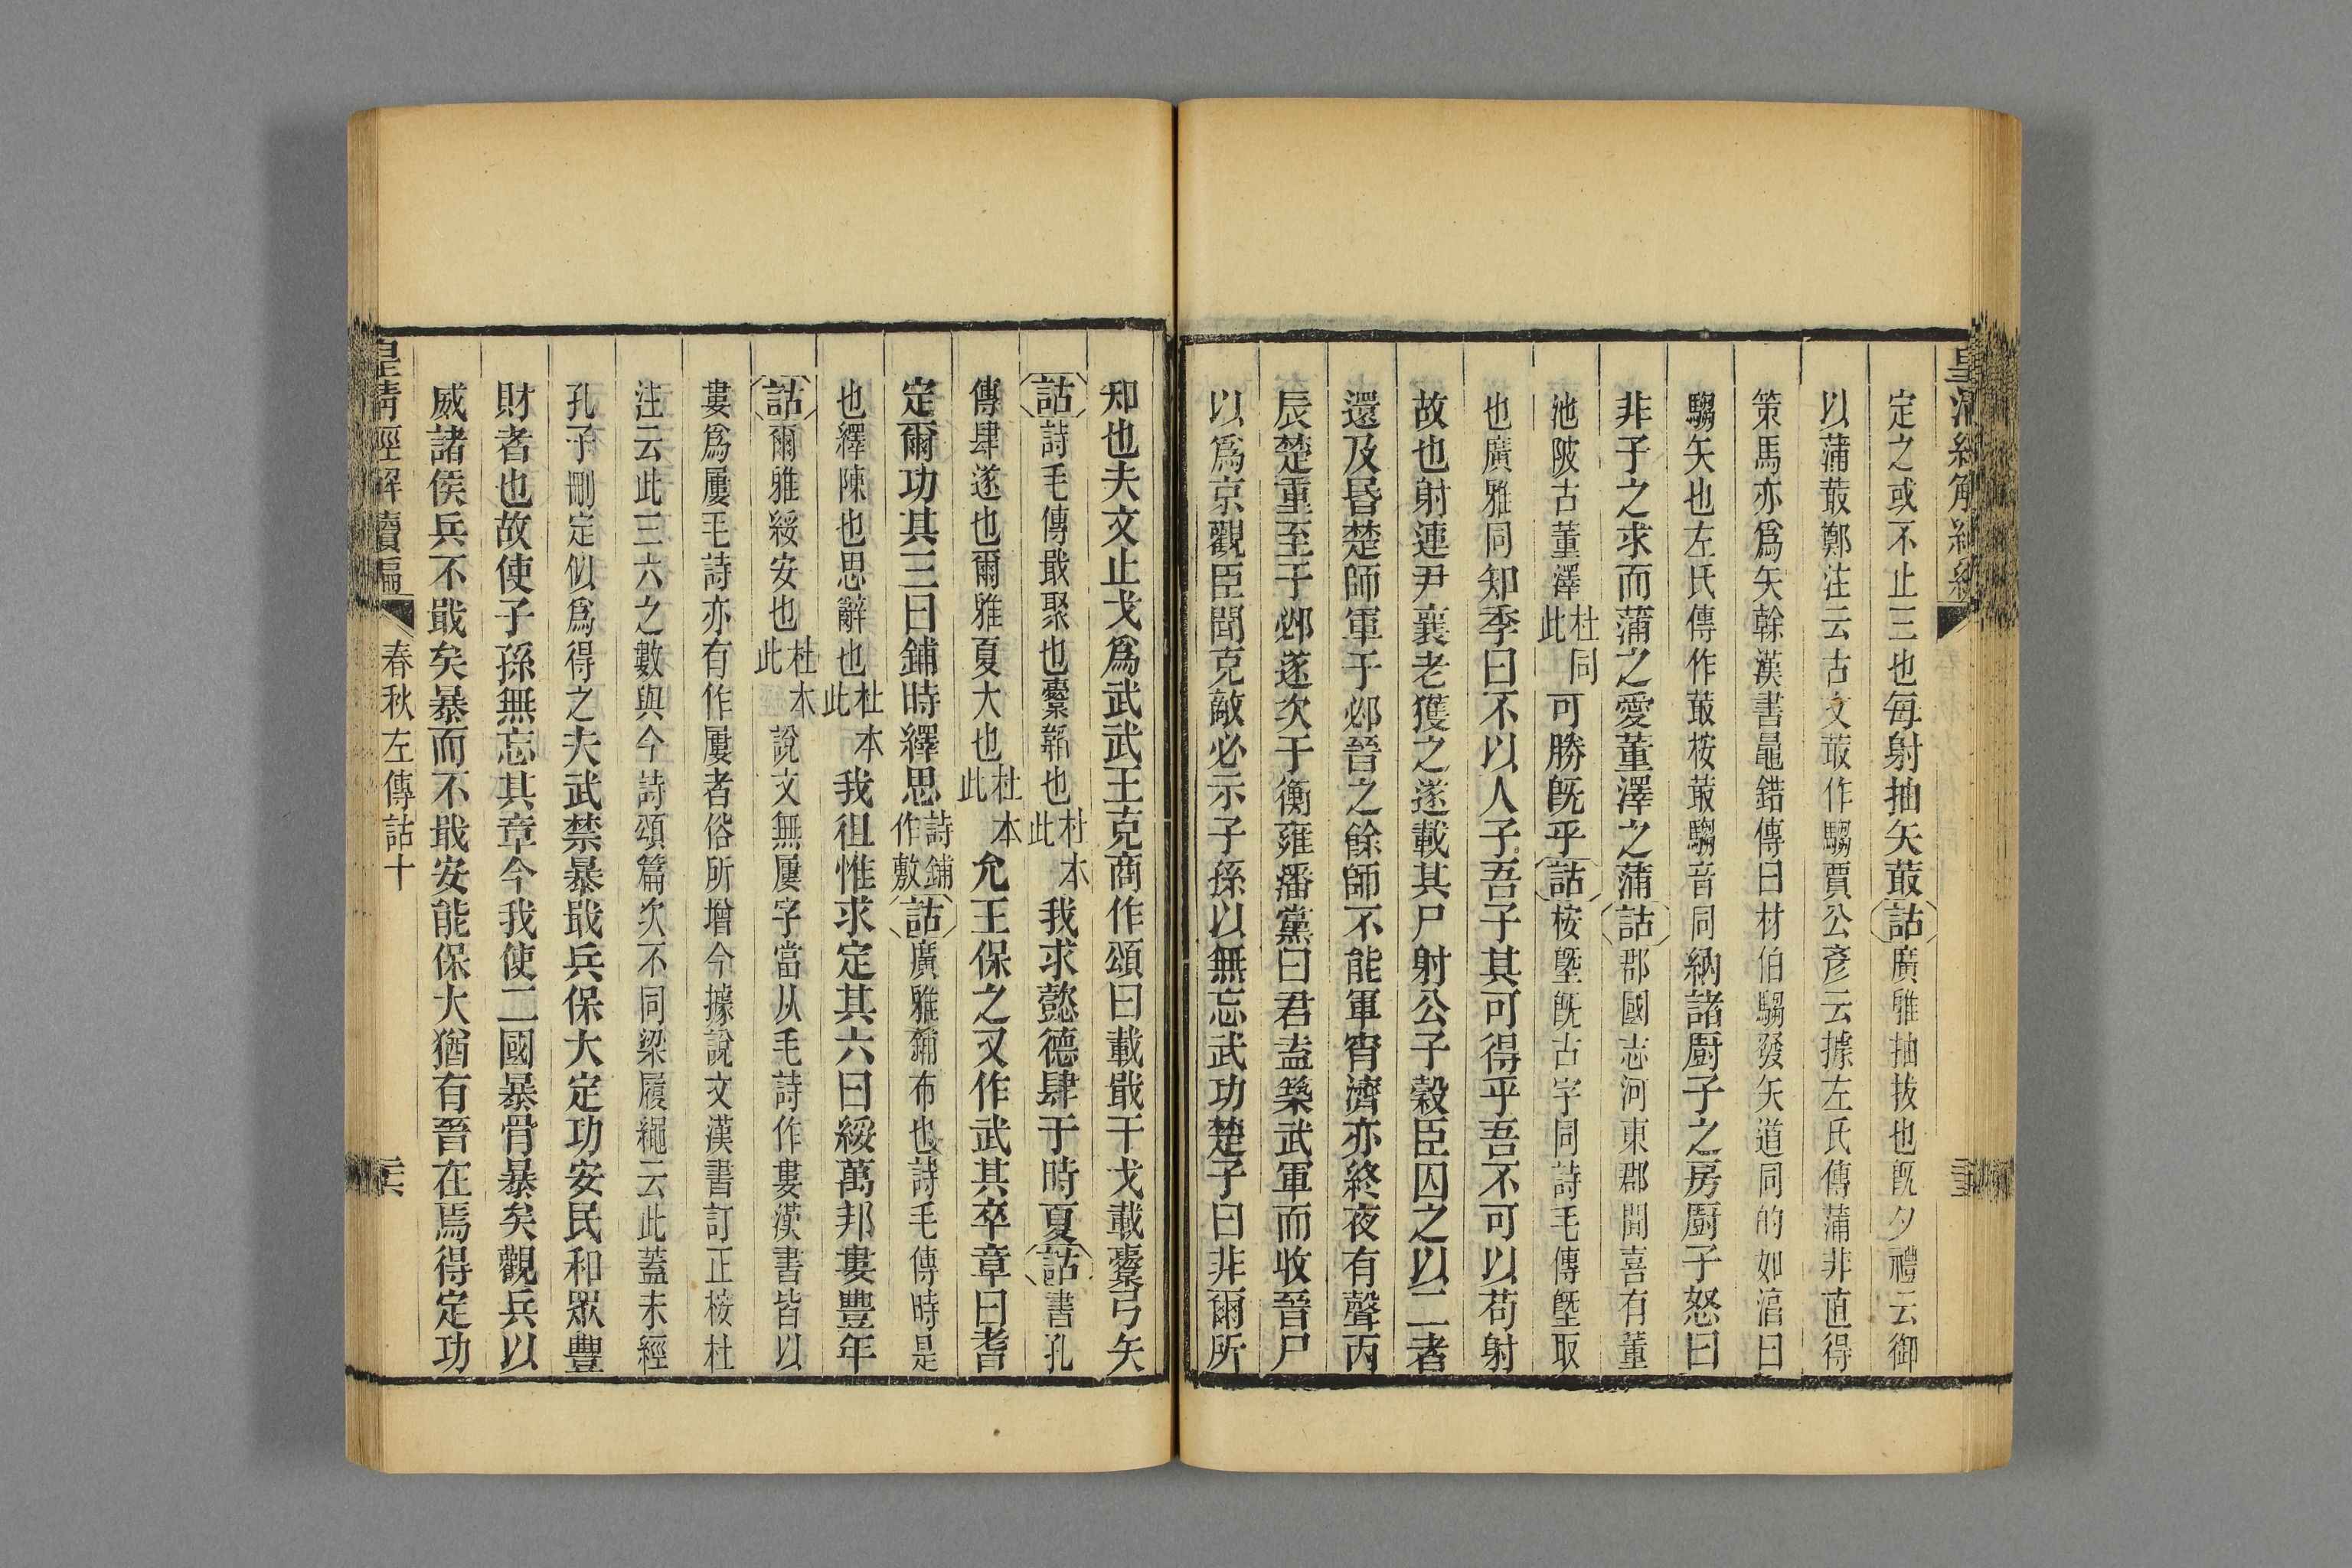 定之或不止三也每射抽矢菆詁廣雅抽拔也旣夕禮云御
以蒲菆鄭注云古文菆作騶賈公彥云據左氏傳蒲非直得
策馬亦爲矢幹漢書鼂錯傳曰材伯騶發矢道同的如淳曰
騶矢也左氏傳作菆桉菆騶音同納諸厨子之房厨子怒曰
非子之求而蒲之愛董澤之蒲詁郡國志河東郡聞喜有董
池陂古董澤杜同此可勝旣乎詁桉墍旣古字同詩毛傳墍取
也廣雅同知季曰不以人子吾子其可得乎吾不可以苟射
故也射連尹襄老獲之遂載其尸射公子穀臣囚之以二者
還及昬楚師軍于邲晉之餘師不能軍宵濟亦終夜有聲丙
辰楚重至于邲遂次于衡雍潘黨曰君盍築武軍而收晉尸
以爲京觀臣聞克敵必示子孫以無忘武功楚子曰非爾所
知也夫文止戈爲武武王克商作頌曰載戢干戈載櫜弓矢
詁詩毛傳戢聚也櫜韜也杜本此我求懿德肆于時夏詁書孔
傳肆遂也爾雅夏大也杜本此允王保之又作武其卒章曰耆
定爾功其三曰鋪時繹思詩鋪作敷詁廣雅鋪布也詩毛傳時是
也繹陳也思辭也杜本此我徂惟求定其六曰綏萬邦婁豐年
詁爾雅綏安也杜本此說文無屢字當从毛詩作婁漢書皆以
婁爲屢毛詩亦有作屢者俗所增今據說文漢書訂正桉杜
注云此三六之數與今詩頌篇次不同梁履繩云此蓋未經
孔子刪定似爲得之夫武禁暴戢兵保大定功安民和眾豐
財者也故使子孫無忘其章今我使二國暴骨暴矣觀兵以
威諸侯兵不戢矣暴而不戢安能保大猶有晉在焉得定功
皇清經解續編 春秋左傳詁十